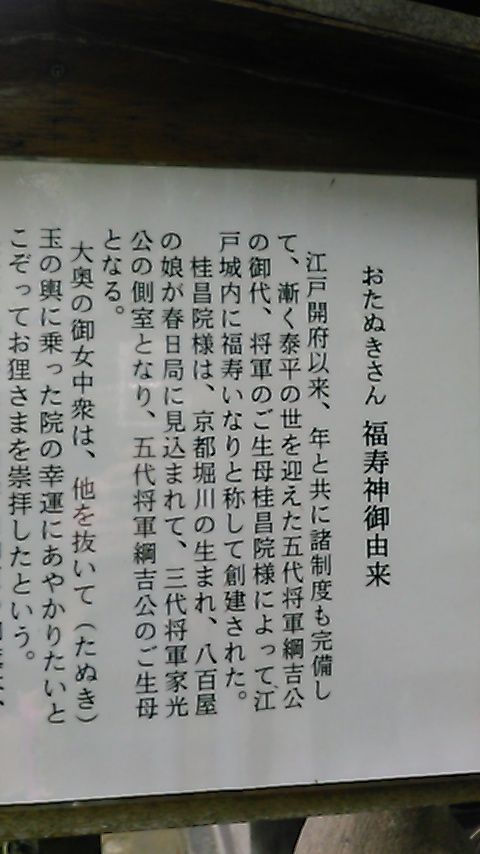 おたぬきさん 福寿神御由来
江戸開府以来、年と共に諸制度も完備し
て、漸く泰平の世を迎えた五代将軍綱吉公
の御代、将軍のご生母桂昌院様によって、江
戸城内に福寿いなりと称して創建された。
桂昌院様は、京都堀川の生まれ、八百屋
の娘が春日局に見込まれて、三代将軍家光
公の側室となり、五代将軍綱吉公のご生母
となる。
大奥の御女中衆は、他を抜いて（たぬき）
玉の輿に乗った院の幸運にあやかりたいと
こぞってお狸さまを崇拝したという。